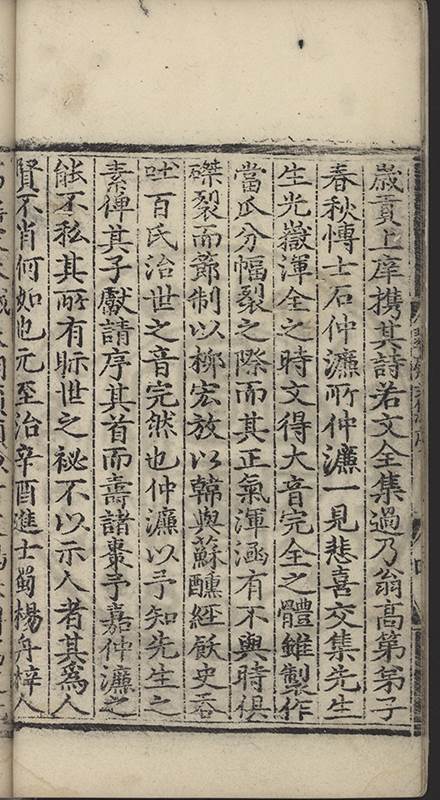 歲貢上庠携其詩若文全集過乃翁高第弟子
春秋愽士石仲濂所仲濂一見悲喜交集先生
生光嶽渾全之時文得大音完全之體雖製作
當瓜分幅裂之際而其正氣渾涵有不與時俱
磔裂而節制以栁宏放以韓與蘇醺經飫史吞
吐百氏治世之音完然也仲濂以予知先生之
素俾其子獻請序其首而壽諸棗予嘉仲濂之
能不私其所有眎世之祕不以示人者其爲人
賢不肖何如也元至治辛酉進士蜀楊舟梓人